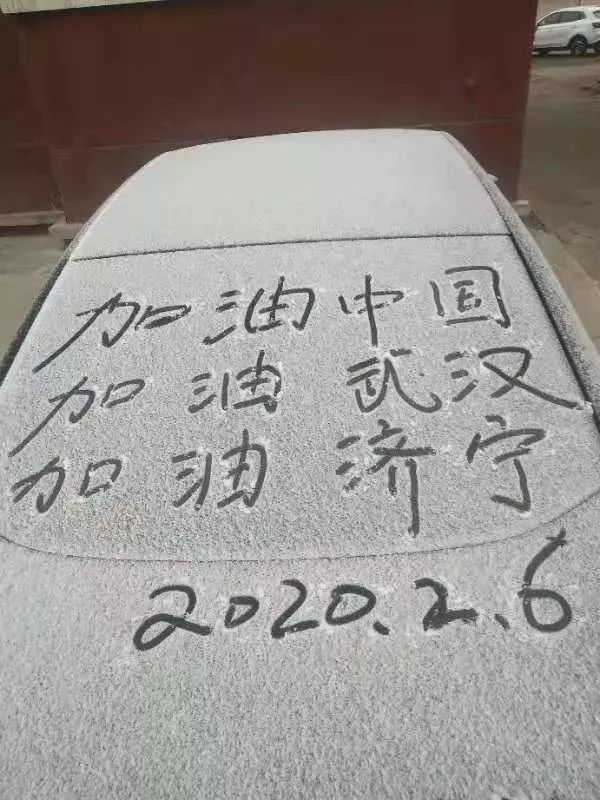 加油中国
加油武汉
加油济宁
2020.2.6